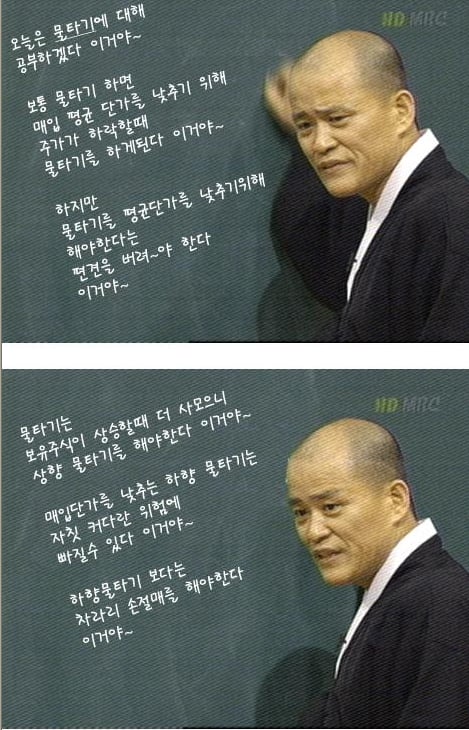 HD MBC
오늘은 물타기에 대해
공부하겠다 이거야~
보통 물타기 하면
매입 평균 단가를 낮추기 위해
주가가 하락할때
물타기를 하게된다 이거야~
하지만
물타기를 평균단가를 낮추기위해
해야한다는
편견을 버려~야 한다
이거야~
HD MBC
물타기는
보유주식이 상승할때 더 사모으니
상향 물타기를 해야한다 이거야~
매입단가를 낮추는 하향 물타기는
자칫 커다란 위험에
빠질수 있다 이거야~
하향물타기 보다는
차라리 손절매를 해야한다
이거야~